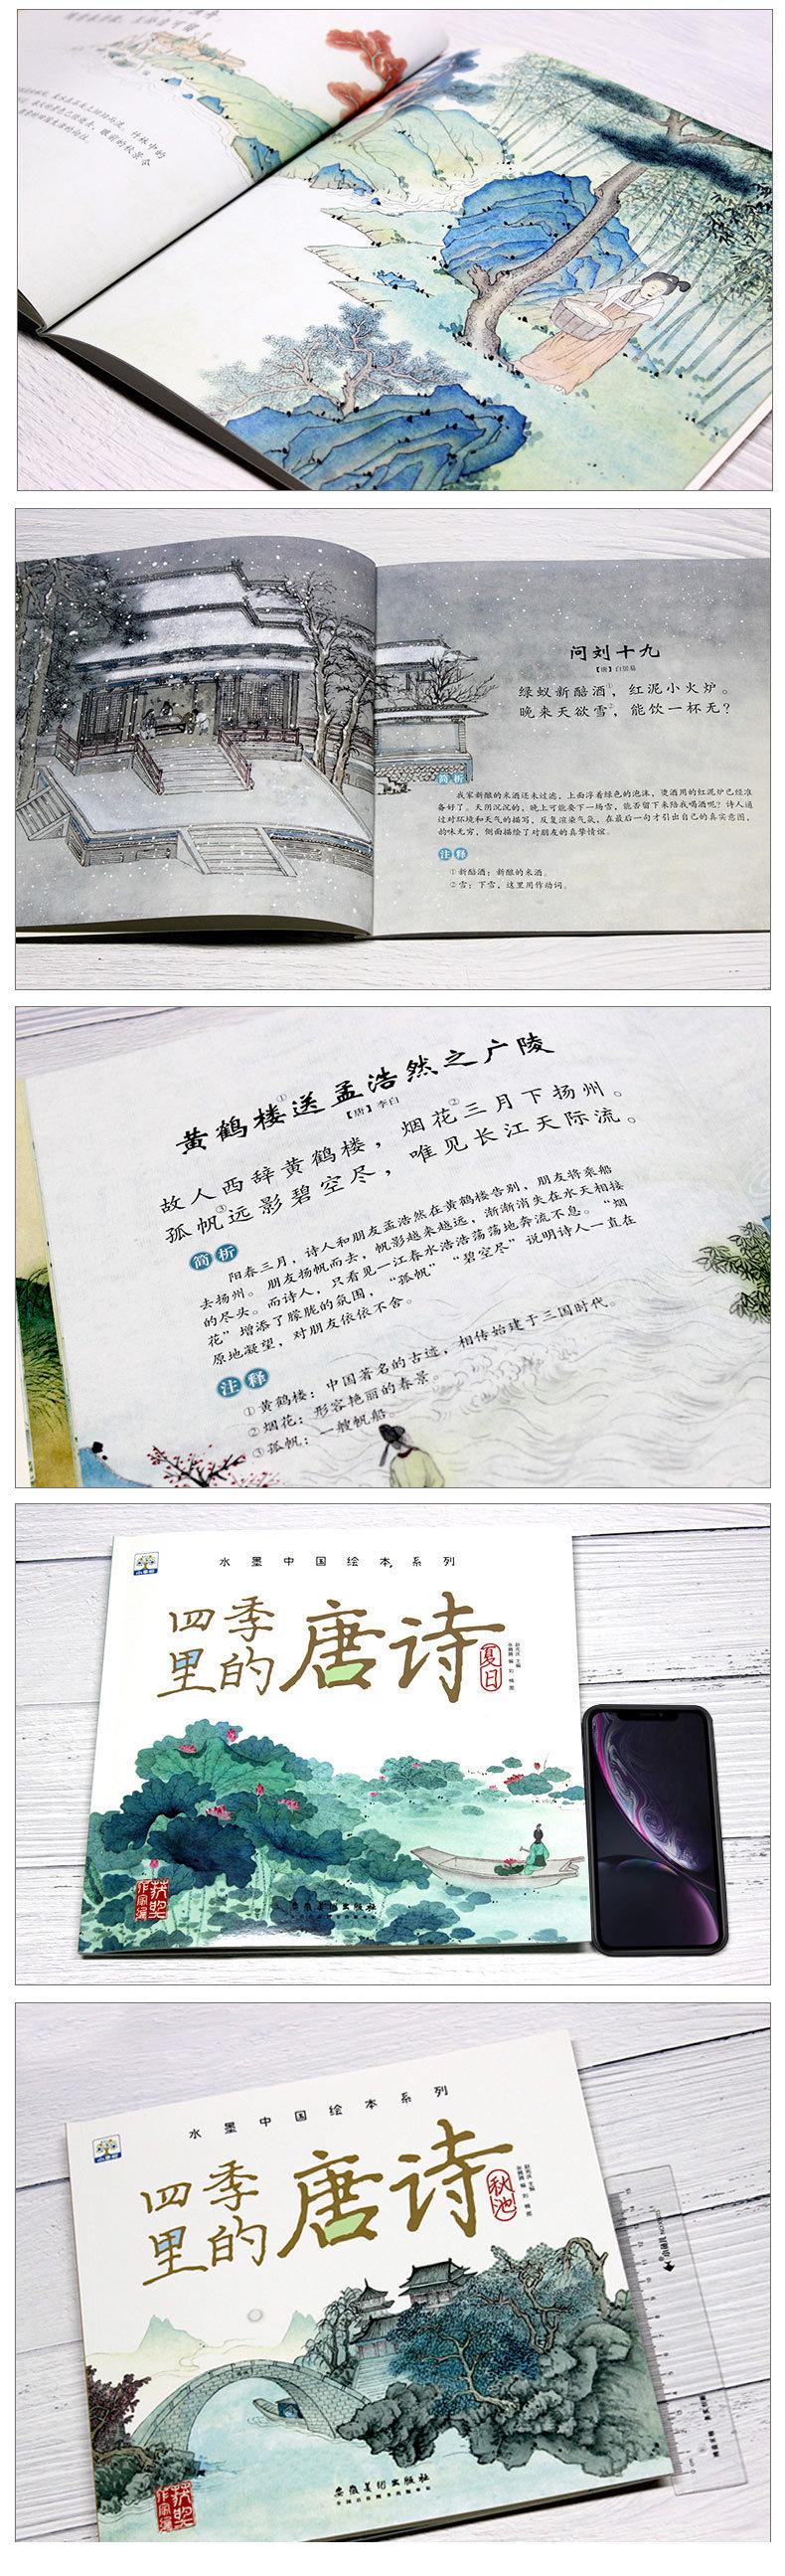 问刘十九
【唐】白居易
绿蚁新醅酒①，红泥小火炉。
晚来天欲雪②，能饮一杯无？
简析
我家新酿的米酒还未过滤，上面浮着绿色的泡沫，烫酒用的红泥炉已经准
备好了。天阴沉沉的，晚上可能要下一场雪，能否留下来陪我喝酒呢？诗人通
过对环境和天气的描写，反复渲染气氛，在最后一句才引出自己的真实意图，
韵味无穷，侧面描绘了对朋友的真挚情谊。
注释
①新醅酒：新酿的米酒。
②雪：下雪，这里用作动词。
黄鹤楼①送孟浩然之广陵
【唐】李白
故人西辞黄鹤楼，烟花②三月下扬州。
孤帆③远影碧空尽，唯见长江天际流。
简析
阳春三月，诗人和朋友孟浩然在黄鹤楼告别，朋友将乘船
去扬州。朋友扬帆而去，帆影越来越远，渐渐消失在水天相接
的尽头。而诗人，只看见一江春水浩浩荡荡地奔流不息。“烟
花”增添了朦胧的氛围，“孤帆”“碧空尽”说明诗人一直在
原地凝望，对朋友依依不舍。
注释
①黄鹤楼：中国著名的古迹，相传始建于三国时代。
②烟花：形容艳丽的春景。
③孤帆：一艘帆船。
水墨中国绘本系列
四季
里的
唐诗
夏日
获奖
作家编
安徽美术出版社
水墨中国绘本系列
四季
里的
唐诗
秋池
获奖
作家编
安徽美术出版社